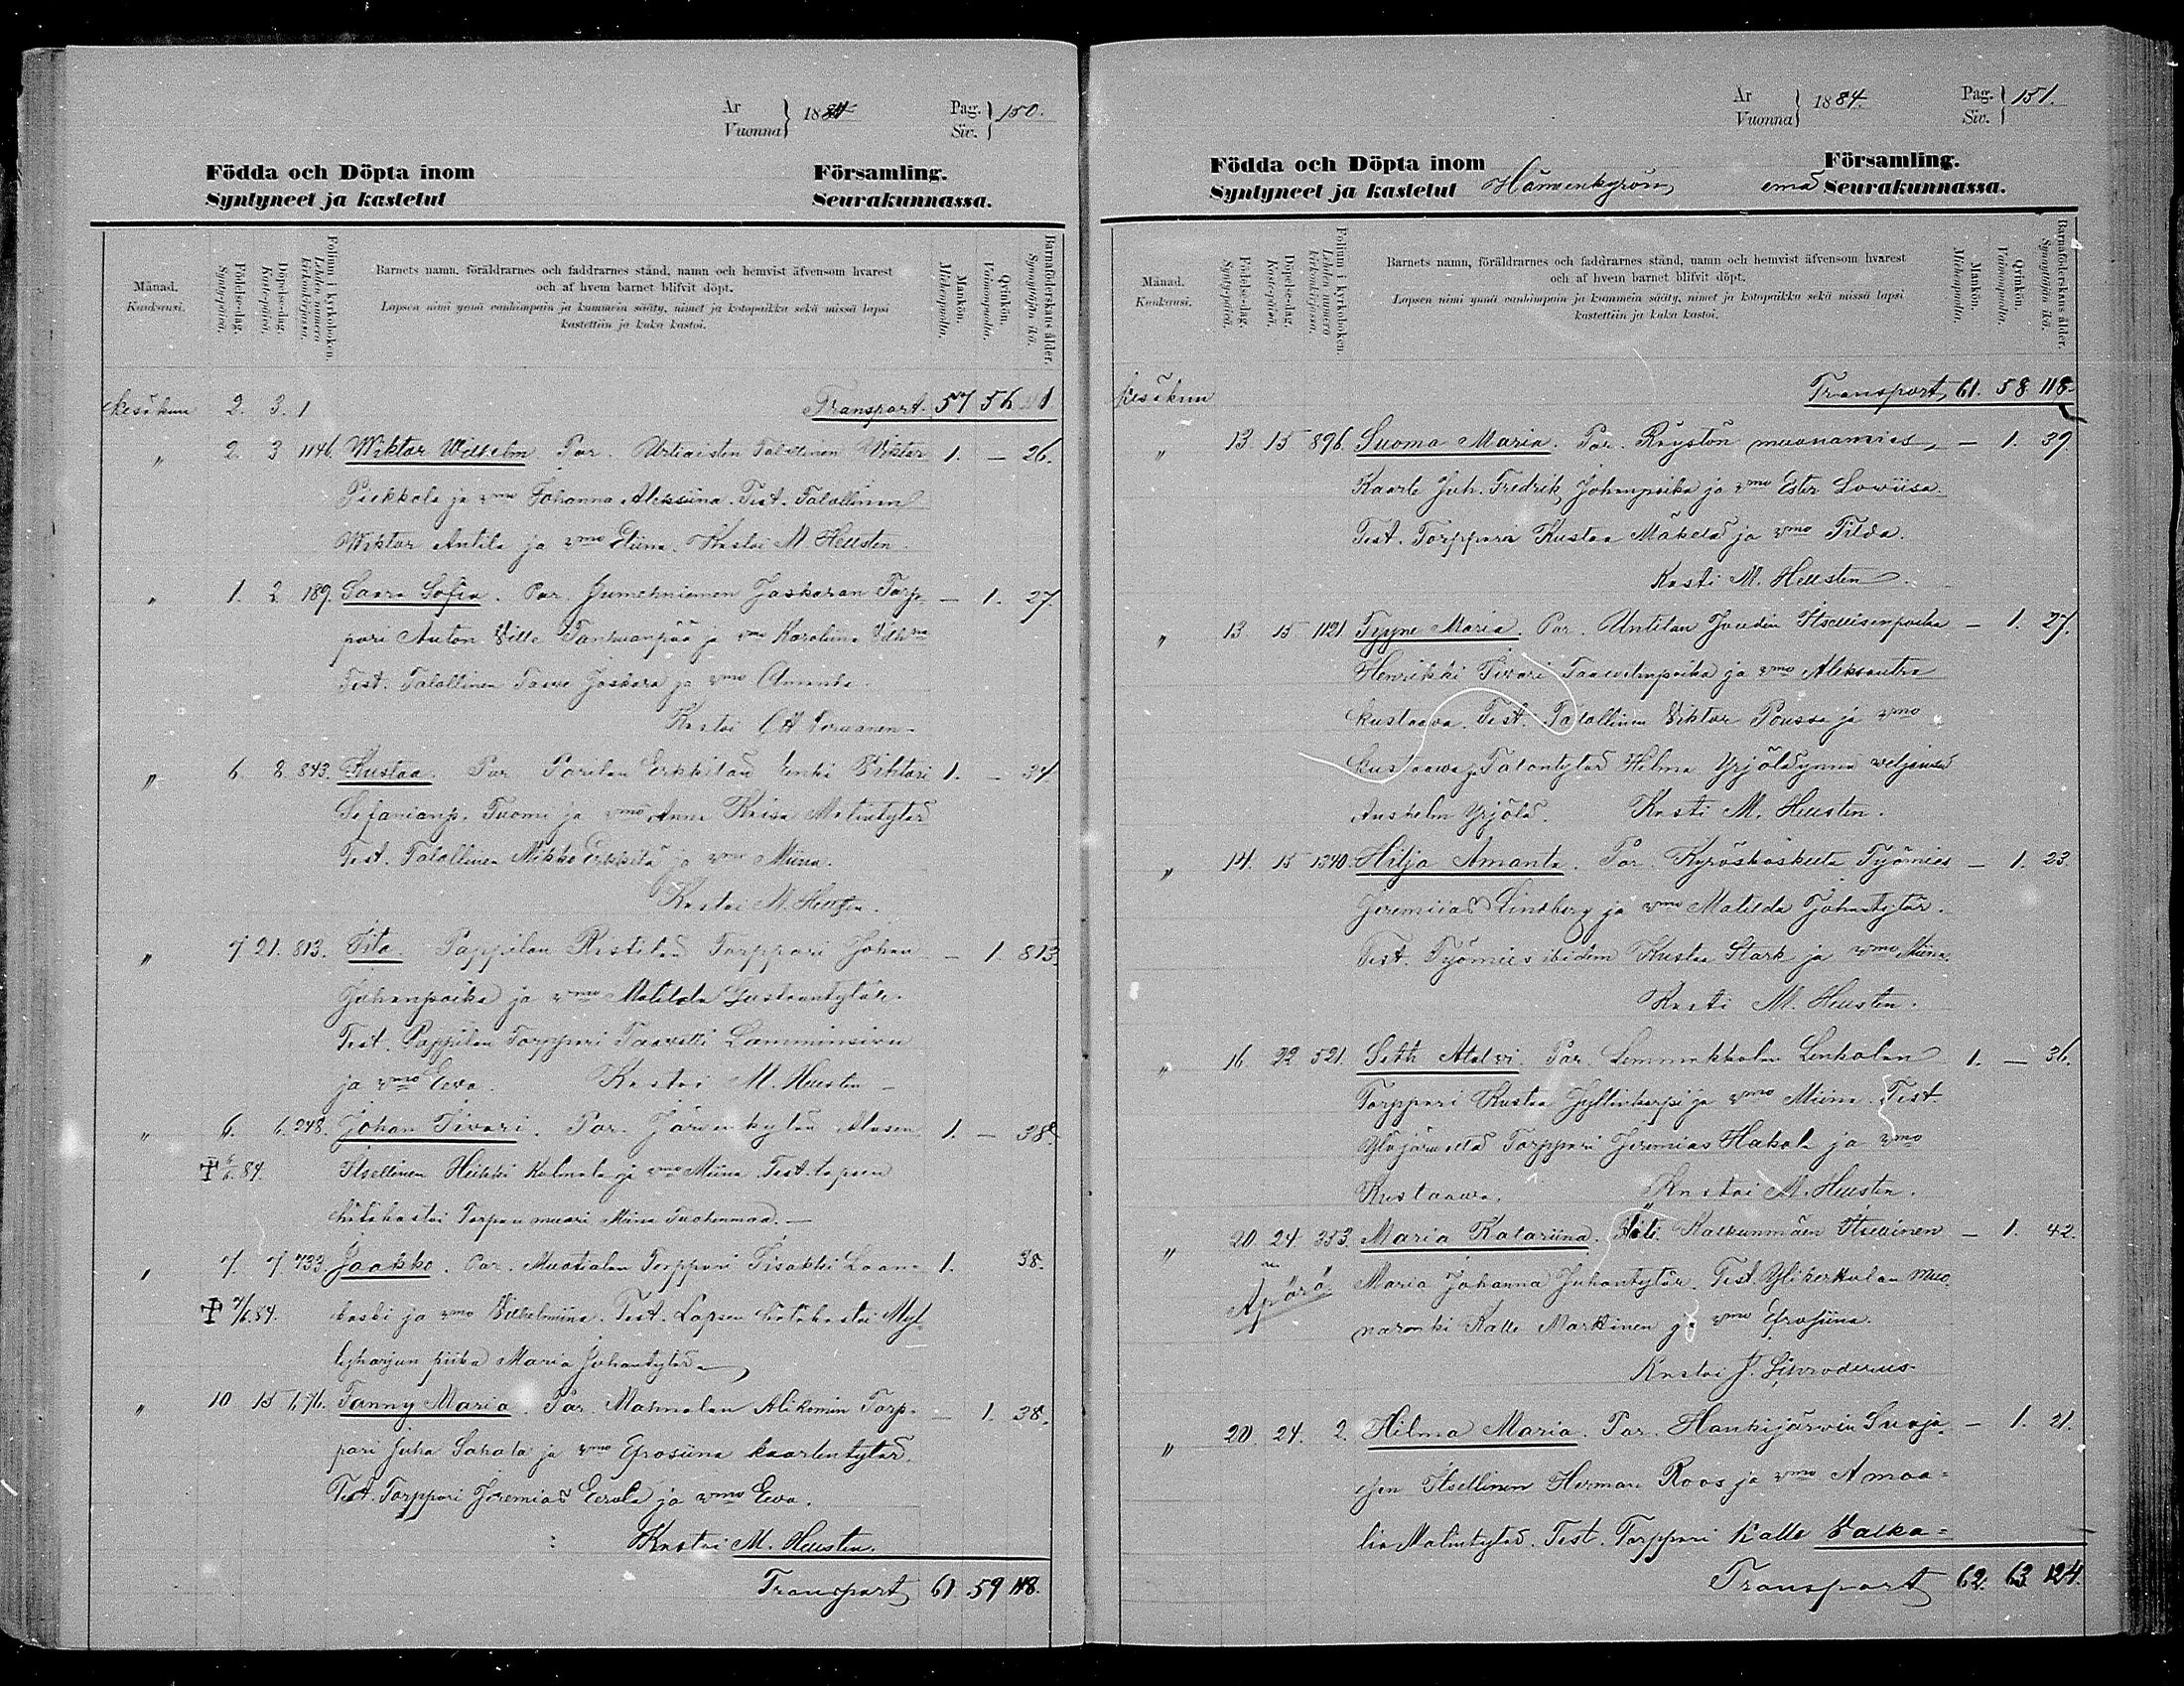 År
Vuonna } 1884
Pag.
Siv. } 150.
Födda och Döpta inom Församling.
Syntyneet ja kastetut Seurakunnassa.
Månad.
Kuukausi.
Födelse-dag.
Syntypäivä.
Döpelse-dag.
Kastepäivä.
Folium i kyrkoboken.
Lehden numero kirkonkirjassa.
Barnets namn, föräldrarnes och faddrarnes stånd, namn och hemvist äfvensom hvarest
och af hvem barnet blifvit döpt.
Lapsen nimi ynnä vanhimpain ja kummein sääty, nimet ja kotopaikka sekä missä lapsi
kastettiin ja kuka kastoi.
Mankön.
Miehenpuolia.
Qvinkön.
Vaimonpuolia.
Barnaföderskans ålder.
Synnyttäjän ikä.
Kesäkuu 2. 3. 1 Transport. 57 56
" 2. 3 1146. Wiktor Wilhelm Par. Talollinen Viktor 1. — 26.
Piekkala ja vmo Johanna Aleksiina. Test. Talollinen
Wiktor Antila ja vmo Eliina. Kastoi M Hellsten.
" 1. 2. 189. Saara Sofia. Par. Jumehniemen Jaskaran Torp- — 1. 27.
pari Anton Ville Tanhuanpää ja vmo Karoliina Vilh
Test. Talollinen Jaskara ja vmo Amanda
Kastoi
" 6. 8. 843. Kustaa. Par. Parilan Erkkilän Vihtori 1. — 34.
Sefanianp. Tuomi ja vmo Anna Kaisa Matintytär
Test. Talollinen Mikko Erkkilä ja vmo Miina.
Kastoi M. Hellsten.
" 7 21. 813. Tita. Pappilan Ristilän Torppari Johan — 1. 813.
Juhanpoika ja vmo Matilda Justaantytär.
Test. Pappilan Torppari Taavetti Lamminsivu
ja vmo Eeva. Kastoi M. Hellsten
" 6. 6. 248. Johan Iivari. Par. Järvenkylän Alasen 1. — 38.
✝ 6/6.84. Itsellinen Heikki Kulmala ja vmo Miina. Test. Lapsen
hätäkastoi Torpan muori Miina Tuohenmaa.—
" 7. 7 733. Jaakko. Par. Mustialan Torppari Iisakki Laan- 1. 38.
✝ 7/6.84. koski ja vmo Vilhelmiina. Test. Lapsen hätäkastoi Myl
lyharjun piika Maria Juhantytär
" 10 15 Fanny Maria. Par. Mahnalan Alikomin Torp- — 1. 38.
pari Juha Sahala ja vmo Efrosiina Kaarlentytär.
Test. Torppari Jeremias Eerola ja vmo Eeva.
Kastoi M. Hellsten.
Transport 61. 59 118.
År
Vuonna } 1884.
Pag.
Siv. } 151.
Födda och Döpta inom Församling.
Syntyneet ja kastetut Hämeenkyrön emä Seurakunnassa.
Månad.
Kuukausi.
Födelse-dag.
Syntypäivä.
Döpelse-dag.
Kastepäivä.
Folium i kyrkoboken.
Lehden numero kirkonkirjassa.
Barnets namn, föräldrarnes och faddrarnes stånd, namn och hemvist äfvensom hvarest
och af hvem barnet blifvit döpt.
Lapsen nimi ynnä vanhimpain ja kummein sääty, nimet ja kotopaikka sekä missä lapsi
kastettiin ja kuka kastoi.
Mankön.
Miehenpuolia.
Qvinkön.
Vaimonpuolia.
Barnaföderskans ålder.
Synnyttäjän ikä.
Kesäkuu Transport 61. 58 118.
" 13. 15 896. Suoma Maria. Par. Röystön muonamies — 1. 39.
Kaarle Juh. Fredrik Johanpoika ja vmo Ester Lowiisa.
Test. Torppari Kustaa Mäkelä ja vmo Tilda.
Kasti M. Hellsten.
" 13. 15 1121. Tyyne Maria. Par. Antilan Jaudin Itsellisenpoika — 1. 27.
Henrikki Iivari Taavetinpoika ja vmo Aleksantra
Kustaava. Test. Talollinen Viktor Poussa ja vmo
Kustaava, Talontytär Hilma Yrjölä ynnä veljensä
Anshelm Yrjölä. Kasti M. Hellsten.
" 14. 15 1340. Hilja Amanta. Par. Kyröskoskelta Työmies — 1. 23
Jeremiias Lindberg ja vmo Matilda Johantytär.
Test. Työmies ibidem Kustaa Stark ja vmo Miina
Kasti M. Hellsten.
" 16. 22 521. Seth Alalvi. Par. Lemmakkalan Lenholan 1. — 36.
Torppari Kustaa Hyllinkorpi ja vmo Miina. Test.
Ylöjärveltä Torppari Jeremias Hakala ja vmo
Kustaawa. Kastoi M. Hellsten.
" 20. 24. 353. Maria Katariina. Äiti. Kalkunmäen Itsellinen — 1. 42.
Äpärä Maria Johanna Juhantytär. Test. Ylikerkulan muo
narenki Kalle Markkinen ja vmo Efrosiina.
Kastoi F. Schroderus.
" 20. 24. 2. Hilma Maria. Par. Hankijärvin Suoja- — 1. 21.
sen Itsellinen Herman Roos ja vmo Amaa-
lia Malintytär. Test. Torppari Kalle Valka-
Transport 62. 63 124.